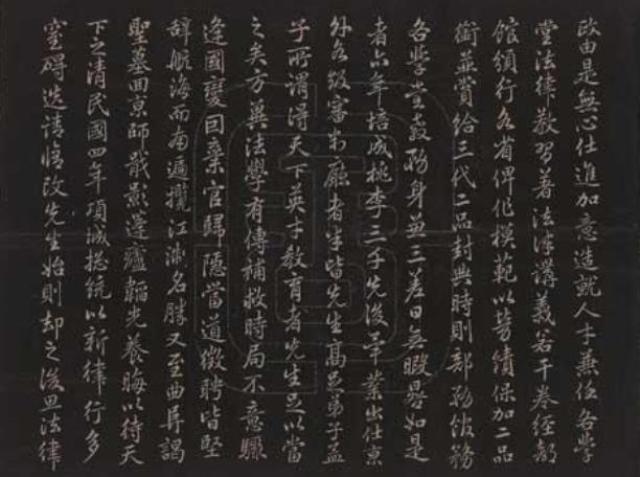 政由是無心仕進加意造就人才兼任各學
堂法律教習著法律講義若干卷經部
館頒行各省俾作模範以勞績保加二品
銜並賞給三代二品封典時則部務館務
各學堂教務身兼三差日無暇晷如是
者六年培成桃李三千先後畢業出仕京
外各級審判廳者半皆先生高足弟子孟
子所謂得天下英才教育者先生足以當
之矣方冀法學有傳補救時局不意驟
逢國變因棄官歸隱當道徵聘皆堅
辭航海而南遍攬江浙名勝又至曲阜謁
聖墓回京師戢影蓬廬韜光養晦以待天
下之清民國四年項城總統以新律行多
窒礙迭請修改先生始則却之後思法律